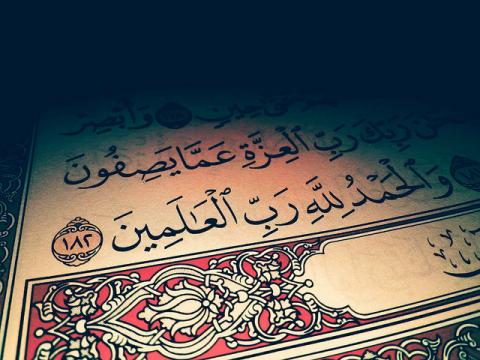 حَتَّىٰ حِينٍ وَأَبْصِرْ
رَبِّكَ رَبِّ ٱلْعِزَّةِ عَمَّا يَصِفُونَ
وَٱلْحَمْدُ لِلَّهِ رَبِّ ٱلْعَٰلَمِينَ ١٨٢